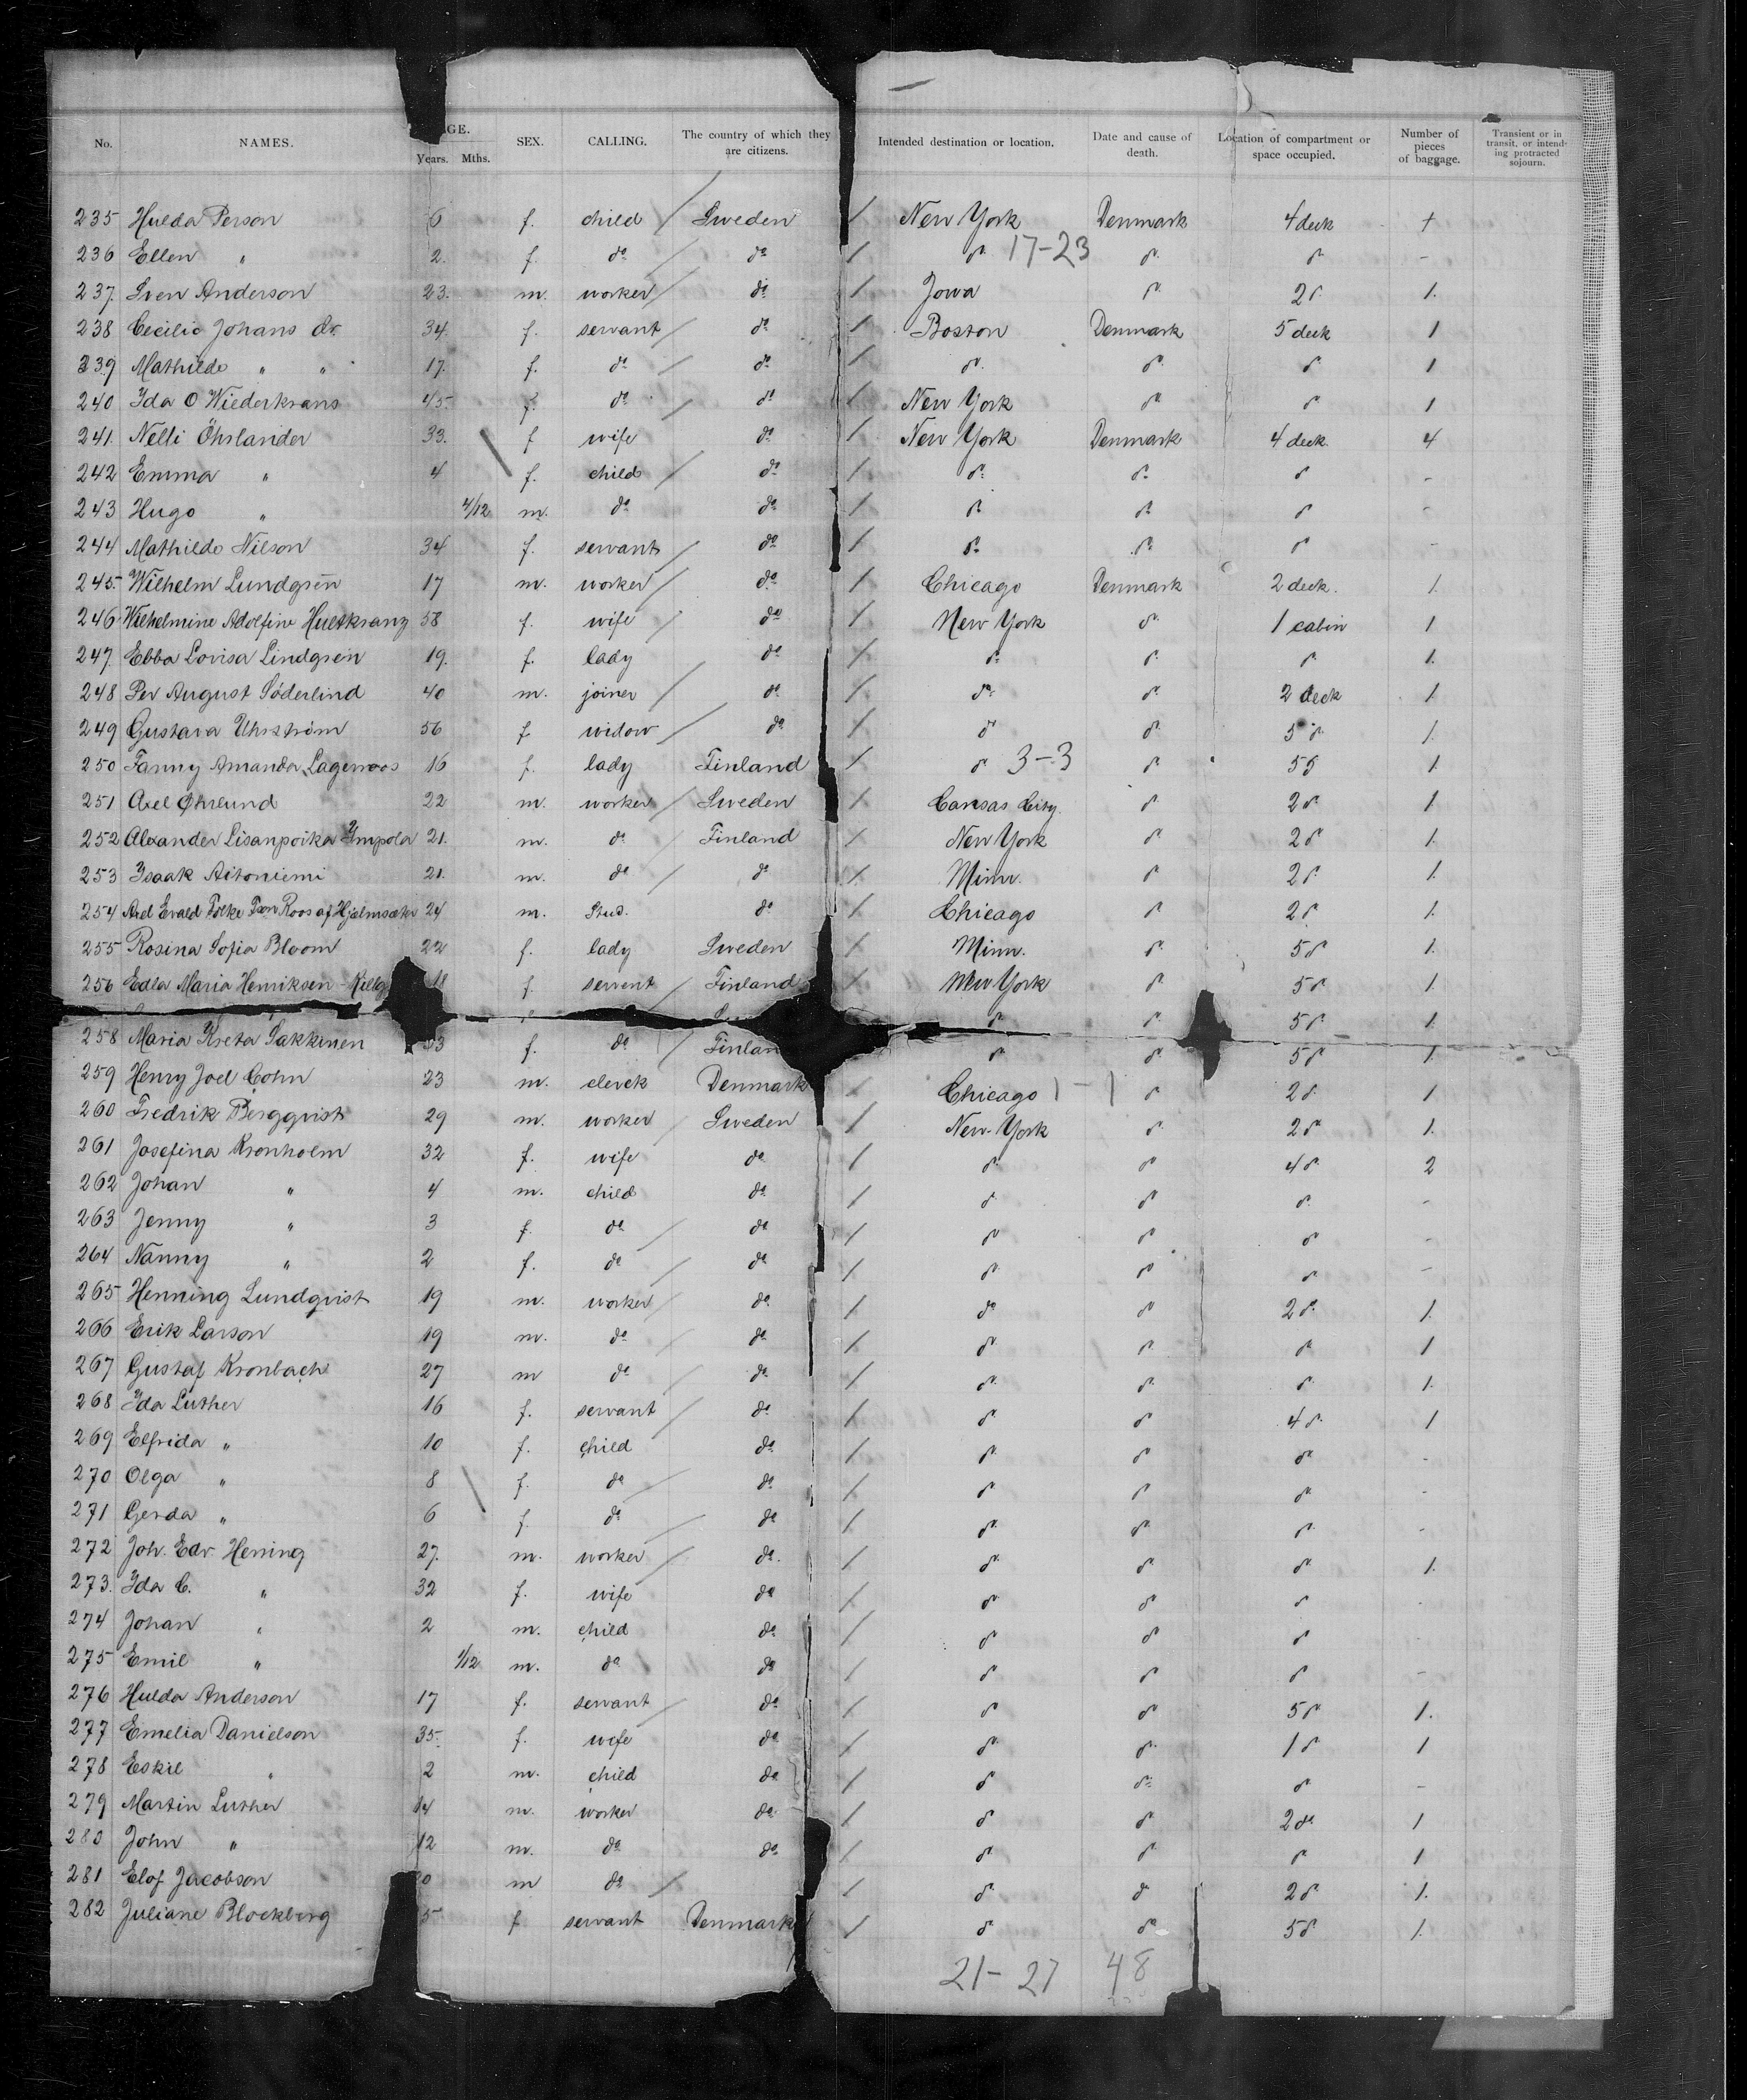 No. NAMES. AGE. Years. Mths. SEX. CALLING. The country of which they are citizens. Intended destination or location. Date and cause of death. Location of compartment or space occupied. Number of pieces of baggage. Transient or in transit, or intending protracted sojourn.
235 Hulda Person 6 f. child / Sweden / New York Denmark 4 deck +
236 Ellen " 2. f. do / do / do 17-23 do do -
237. Sven Anderson 23. m. worker / do / Jowa do 2 do 1.
238 Cecilie Johans dr. 34. f. servant / do / Boston Denmark 5 deck 1
239 Mathilde " " 17. f. do / do / do do do 1
240 Ida O Wiederkrans 45. f. do / do / New York do do 1
241. Nelli Öhrlander 33. f wife do / New York Denmark 4 deck 4
242 Emma " 4 f. child / do / do do do -
243 Hugo " 4/12 m. do do / do do do -
244 Mathilde Nilson 34 f. servant / do / do do do -
245. Wilhelm Lundgren 17 m. worker / do / Chicago Denmark 2 deck. 1.
246. Wilhelmine Adolfine Hultkranz 58 f. wife / do / New York do 1 cabin 1
247. Ebba Lovisa Lindgren 19. f. lady do / do do do 1.
248 Per August Söderlind 40 m. joiner / do / do do 2 deck 1
249 Gustava Uhrström 56 f. widow / do / do do 5 do 1.
250 Fanny Amanda Lagerroos 16 f. lady Finland / do 3-3 do 5 do 1.
251 Axel Öhrlund 22 m. worker / Sweden / Cansas City do 2 do 1
252 Alexander Lisanpoika Ympola 21. m. do / Finland / New York do 2 do 1.
253 Isaak Aitoniemi 21. m. do / do / Minn. do 2 do 1.
254 Axel Evald Folke Roos af Hjelmsäter 24 m. Stud. do / Chicago do 2 do 1.
255 Rosina Sofia Bloom 22 f. lady Sweden / Minn. do 5 do 1.
256 Edla Maria Henriksen - 18 f. servent / Finland / New York do 5 do 1.
do do 5 do 1.
258 Maria Kreta Sakkinen 33 f. do / Finlan do do 5 do 1.
259 Henry Joel Cohn 23 m. clerck Denmark / Chicago 1-1 do 2 do 1
260 Fredrik Bergqvist 29 m. worker / Sweden / New-York do 2 do 1.
261 Josefina Kronholm 32 f. wife do / do do 4 do 2
262 Johan " 4 m. child do / do do do -
263 Jenny " 3 f. do / do / do do do -
264 Nanny " 2 f. do / do / do do do -
265 Henning Lundqvist 19 m. worker / do / do do 2 do 1.
266 Erik Larson 19 m. do / do / do do do 1
267 Gustaf Kronbach 27 m do / do / do do do 1.
268 Ida Luther 16 f. servant / do / do do 4 do 1
269 Elfrida " 10 f. child do / do do do -
270 Olga " 8 f. do / do / do do do -
271 Gerda " 6 f. do / do / do do do -
272 Joh. Edv. Herring 27. m. worker / do. / do do do 1.
273. Ida C. " 32 f. wife do / do do do -
274 Johan " 2 m. child do / do do do -
275 Emil " 1/12 m. do do / do do do -
276 Hulda Anderson 17 f. servant / do / do do 5 do 1.
277 Emelia Danielson 35. f. wife do / do do 1 do 1
278 Eskil " 2 m. child do / do do do -
279 Martin Luther 14 m. worker do / do do 2 do 1
280 John " 12 m. do do / do do do 1
281 Elof Jacobson 0 m do / / do do 2 do 1.
282 Juliane Blockberg 5 f servant Denmark / do do 5 do 1.
21-27 48